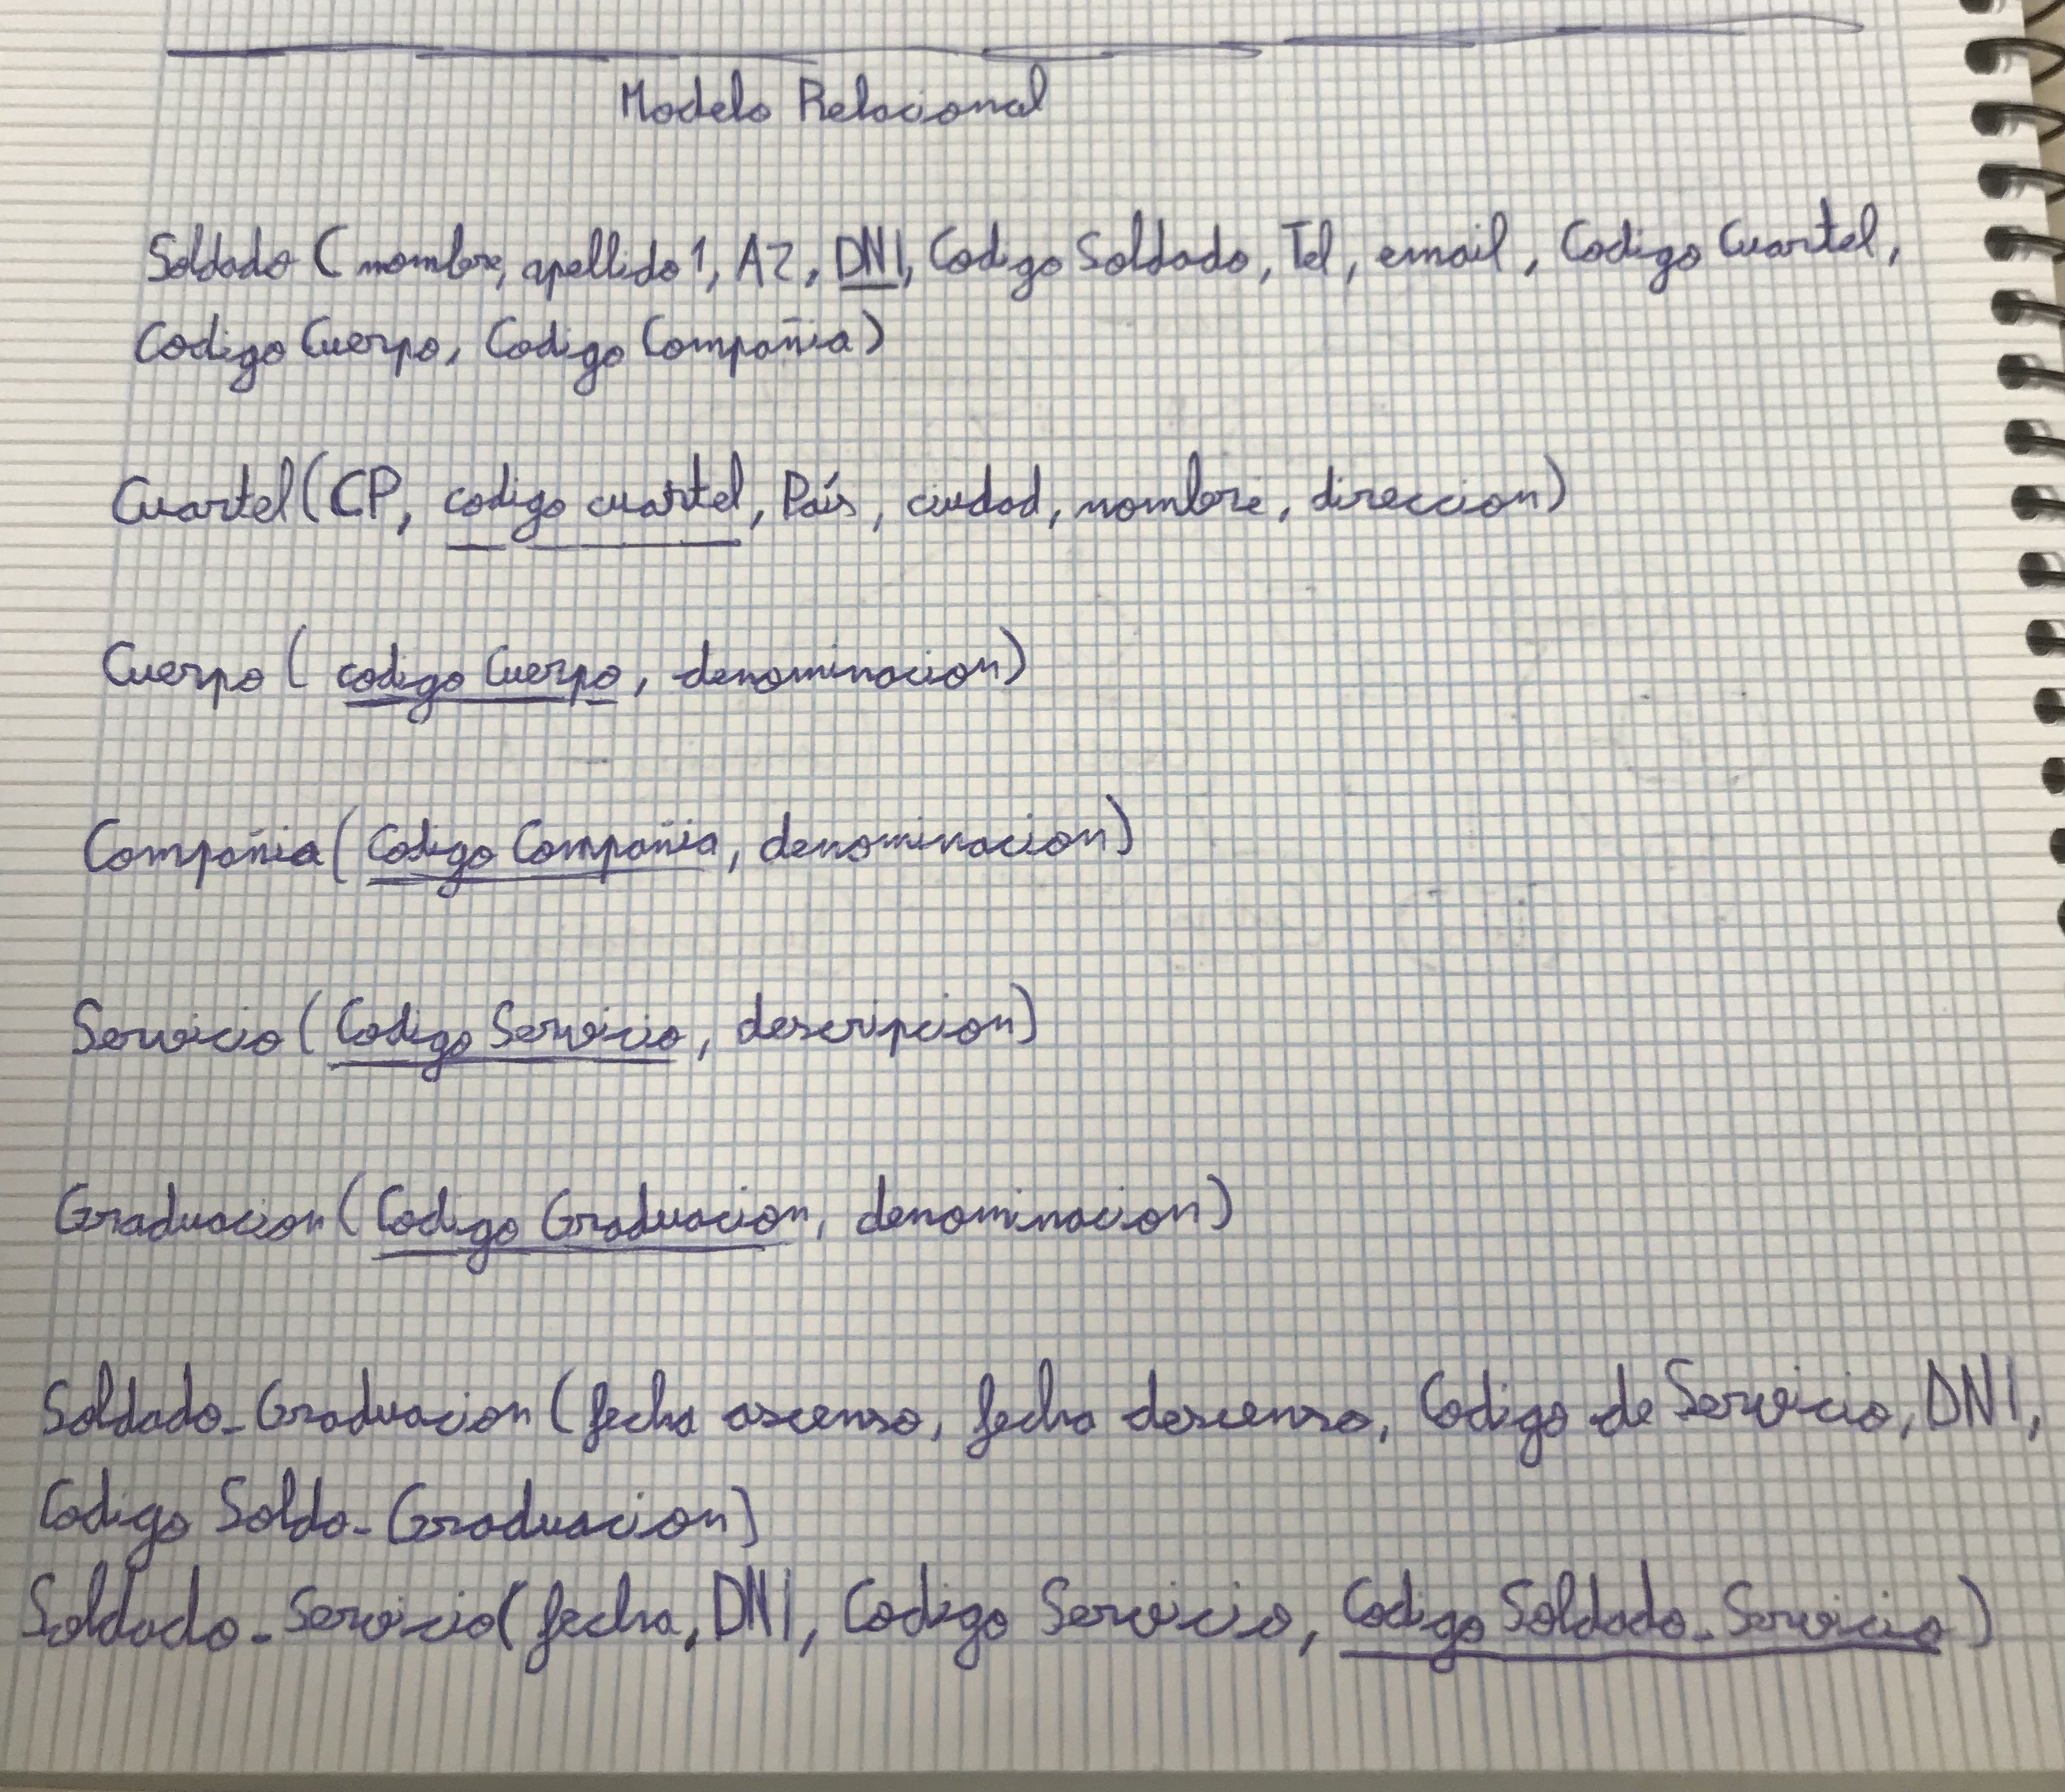 Modelo Relacional
Soldado (nombre, apellido 1, A2, DNI, Codigo Soldado, Tel, email, Codigo Cuartel,
Codigo Cuerpo, Codigo Compañia)
Cuartel (CP, codigo cuartel, País, ciudad, nombre, direccion)
Cuerpo (codigo Cuerpo, denominacion)
Compañia (Codigo Compañia, denominacion)
Servicio (Codigo Servicio, descripcion)
Graduacion (Codigo Graduacion, denominacion)
Soldado_Graduacion (fecha ascenso, fecha descenso, Codigo de Servicio, DNI,
Codigo Soldo_Graduacion)
Soldado_Servicio (fecha, DNI, Codigo Servicio, Codigo Soldado_Servicio)